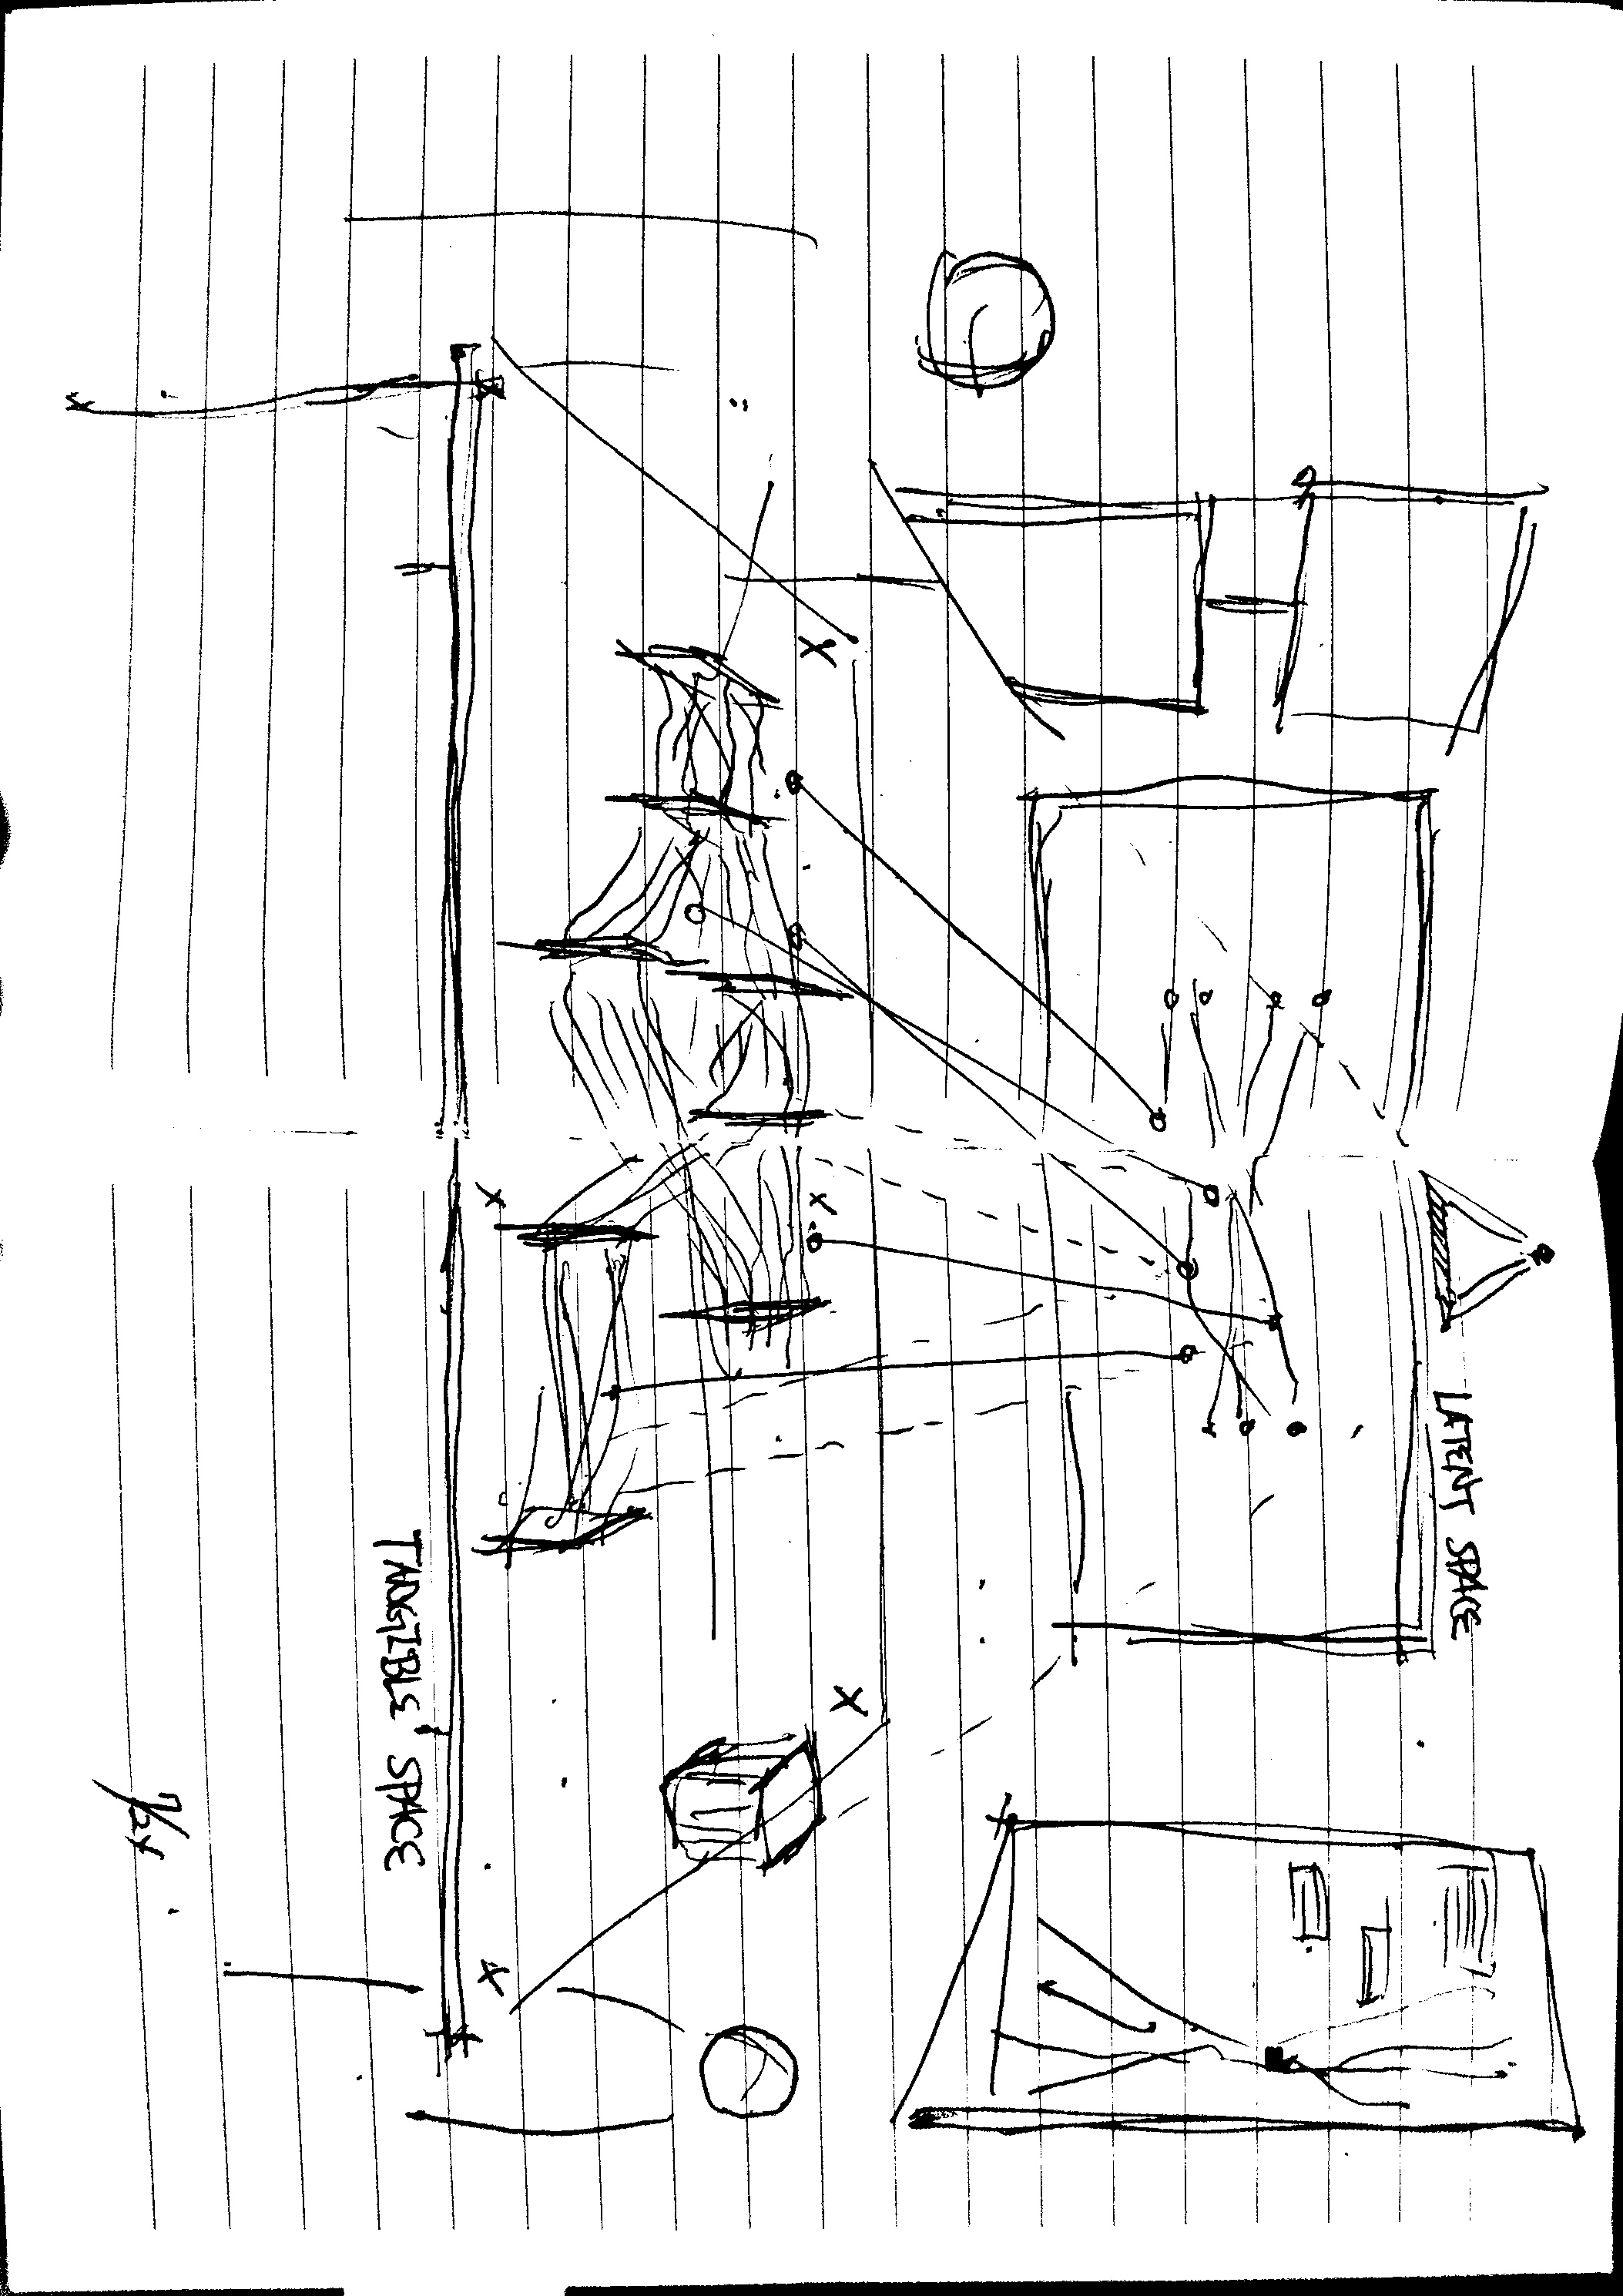 LATENT SPACE
TANGIBLE SPACE
7/24